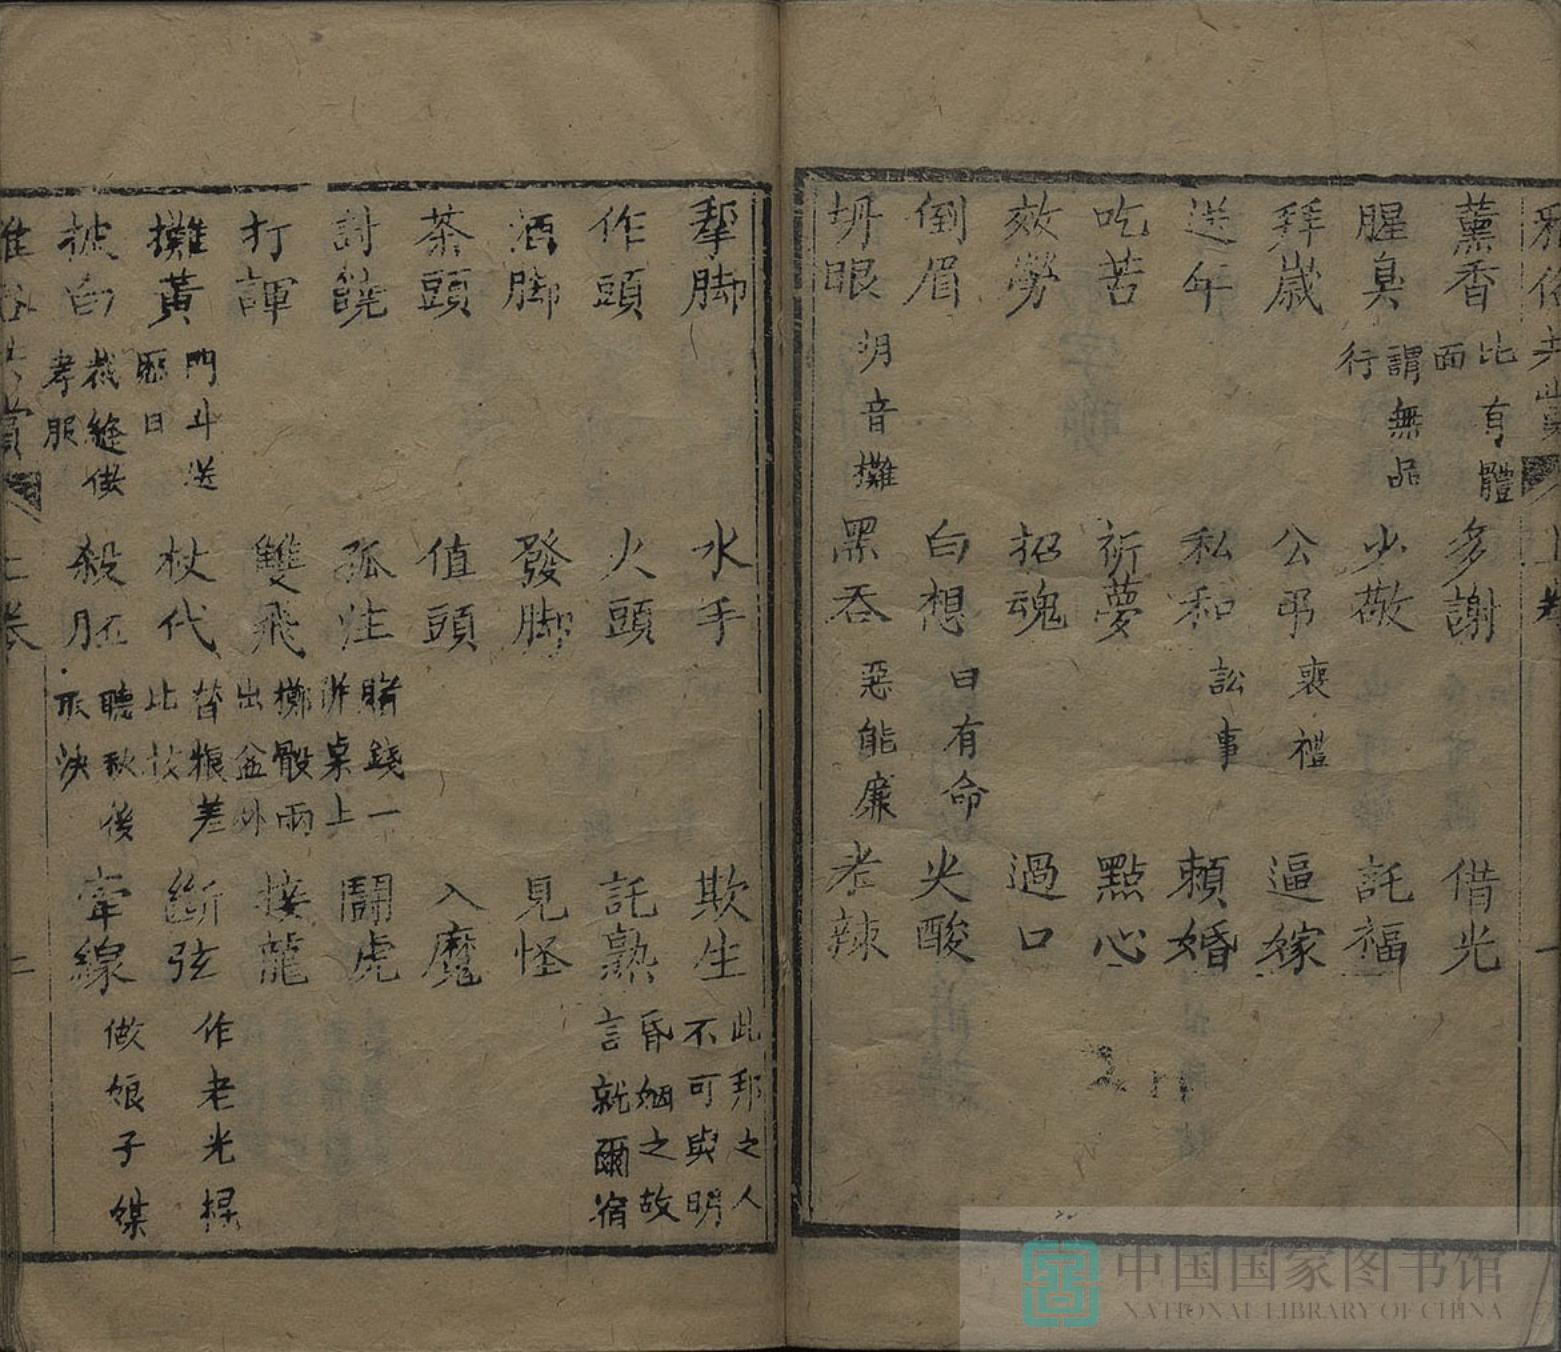 薰香 比有體面 多謝 借光
腥臭 謂無品行 少敬 託福
拜歲 公弔 喪禮 逼嫁
送年 私和 訟事 頼婚
吃苦 祈夢 點心
效勞 招魂 過口
倒眉 白想 曰有命 尖酸
坍眼 坍音攤 黑吞 惡能廉 老辣
犂脚 水手 欺生 此邦之人不可與明
作頭 火頭 託熟 昏姻之故言就爾宿
酒脚 發脚 見怪
茶頭 值頭 入魔
討饒 孤注 賭錢一 桌上 鬪虎
打諢 雙飛 擲骰兩出盆外 接龍
攤黃 門斗送曆日 杖代 替粮差比杖 斷弦 作老光棍
披白 裁縫供孝服 殺胚 聽秋後取決 牽線 做娘子媒
上卷
中国国家图书馆
NATIONAL LIBRARY OF CHINA